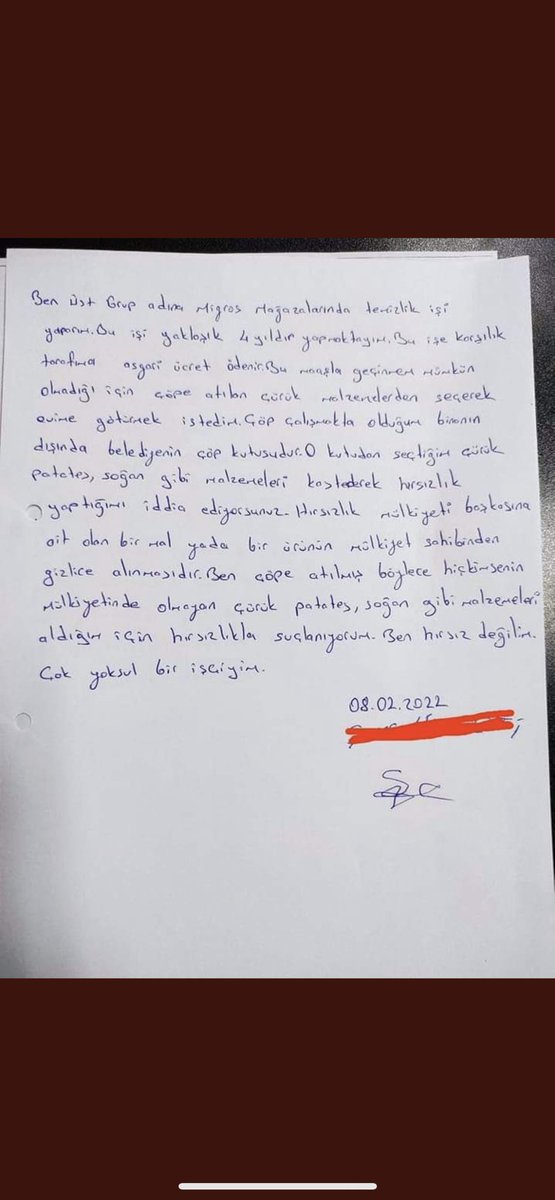 Ben Üst Grup adına Migros Mağazalarında temizlik işi
yaparım. Bu işi yaklaşık 4 yıldır yapmaktayım. Bu işe karşılık
tarafıma asgari ücret ödenir. Bu maaşla geçinmem mümkün
olmadığı için çöpe atılan çürük malzemelerden seçerek
evime götürmek istedim. Çöp çalışmakta olduğum binanın
dışında belediyenin çöp kutusudur. O kutudan seçtiğim çürük
patates, soğan gibi malzemeleri kastederek hırsızlık
yaptığımı iddia ediyorsunuz. Hırsızlık mülkiyeti başkasına
ait olan bir mal yada bir ürünün mülkiyet sahibinden
gizlice alınmasıdır. Ben çöpe atılmış böylece hiçkimsenin
mülkiyetinde olmayan çürük patates, soğan gibi malzemeleri
aldığım için hırsızlıkla suçlanıyorum. Ben hırsız değilim.
Çok yoksul bir işçiyim.
08.02.2022